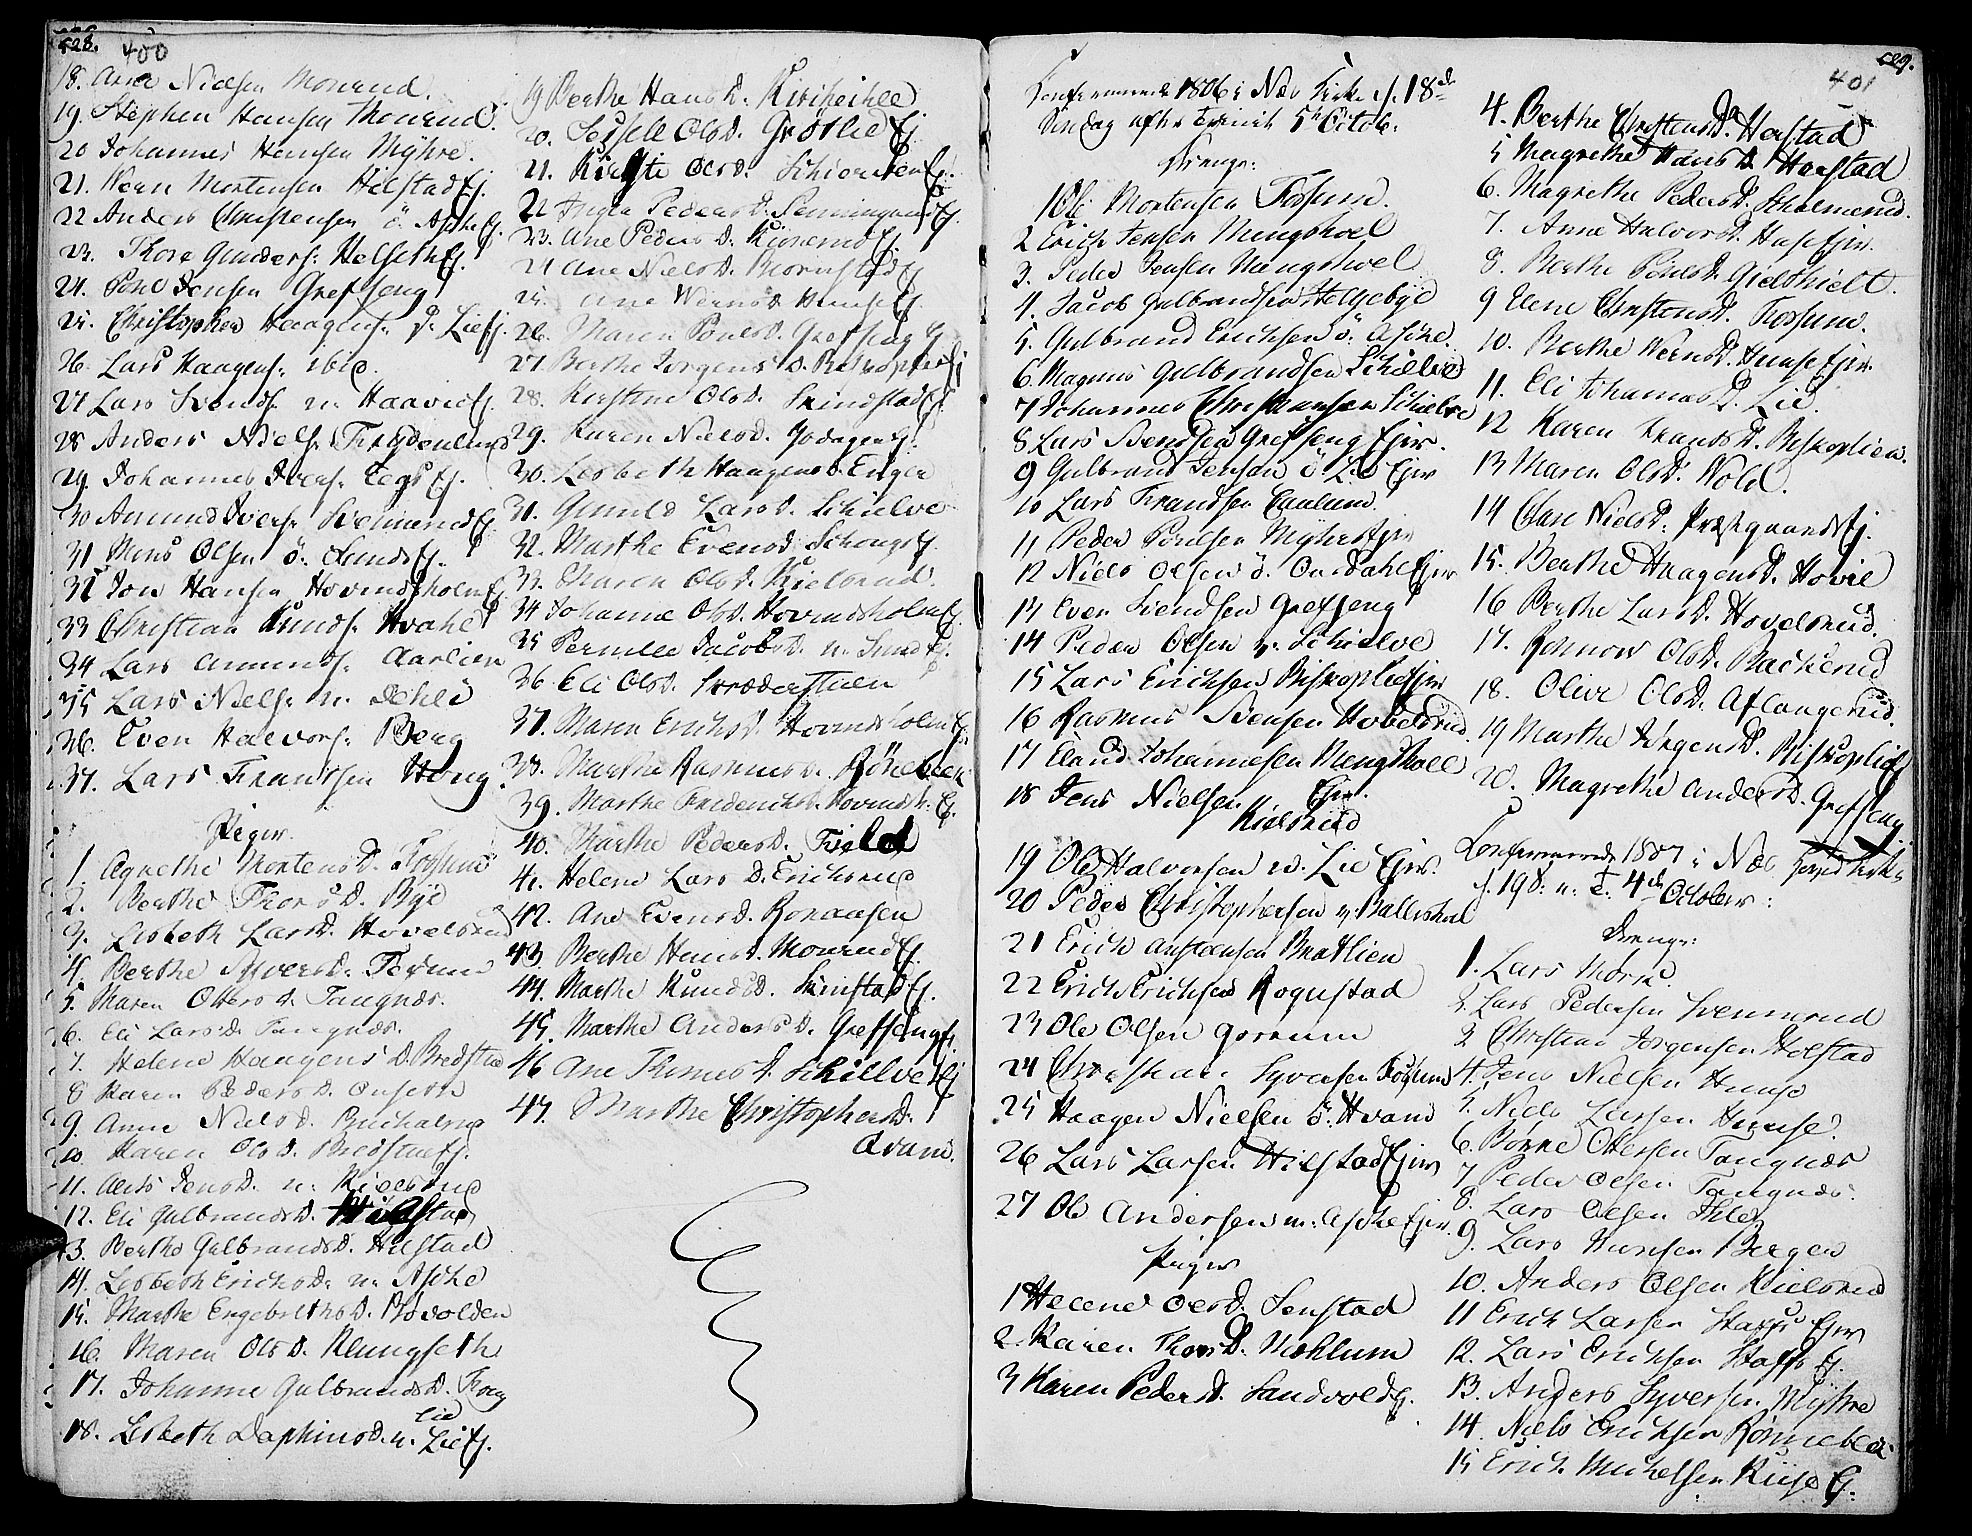 528. 400
18. Arne Nielsen Monrud.
19. Stephen Hansen Thonrud.
20 Johannes Hansen Myhre.
21. Wern Mortensen Hilstad Ej.
22 Anders Christensen ö. Aske Ej.
23. Thore Gunders: Helseth Ej.
24. Poul Jensen Grefseng
25. Christopher Haagens: Lie Ej.
26. Lars Haagens: ibid.
27 Lars Svends: n. Haavie Ej.
28 Anders Niels: Frydenlund
29. Johannes Ivers: Tegs Ej.
30 Amund Ivers: Svennerud Ej.
31 Mons Olsen ö. Sund Ej.
32 Jon Hansen Hovindsholm Ej.
33 Christian Knuds: Hvahl
34 Lars Amunds: Aarlien
35 Lars Niels: n. Dehli
36. Even Halvors: Berg
37. Lars Frantsen Houg.
Piger.
1. Agnethe Mortens D. Fossum
2. Berthe Thors D. Bye
3. Lisbeth Lars D. Hovelsrud
4. Berthe Syvers D. Fossum
5. Maren Otters D. Tangnæs.
6. Eli Lars D. Tangnæs.
7. Helene Haagens D. Bredstue
8 Karen Peders D.
9. Anne Niels D.
10 Karen Ols D. Bredstue Ej.
11. Jens D. n. Kielsrud
12. Eli Gulbrands D. Hilstad
13. Berthe Gulbrands D. Hilstad
14. Lisbeth Erichs D. n. Aske
15. Marthe Engebreths D.
16. Maren Ols D. Klungseth
17. Johanne Gulbrands D.
18. Lisbeth Daphins D. n. Lie Ej.
19 Berthe Hans D. Kirkeihle
20. Sessele Ols D. Grötlie Ej.
21. Kirsti Ols D.
22 Inger Peders D. Ej.
23. Ane Peders D. Ej.
24 Ane Niels D. Biornstad Ej
25. Ane Werns D. Huuse Ej
26. Maren Pouls D. Grefseng Ej
27. Berthe Jorgens D. Biskoplie Ej
28. Kirstine Ols D. Skindstad Ej
29. Karen Niels D. Ej.
30. Lisbeth Haagens D. Enger
31. Gunild Lars D. Schielve
32. Marthe Evens D. Ej.
33. Maren Ols D. Kielsrud.
34 Johanne Ols D. Hovindsholm Ej.
35 Pernille Jacobs D. n. Sund Ej.
36. Eli Ols D. Skræderstuen
37. Maren Erichs D. Hovindsholm Ej.
38. Marthe Rasmus D. Rönebeck
39. Marthe Friderichs D. Hovinds: Ej.
40. Marthe Peders D. Field
41. Helene Lars D. Erichsrud
42. Ane Evens D. Ronaasen
43. Berthe Hans D. Monrud Ej.
44. Marthe Knuds D. Skinstad Ej.
45. Marthe Anders D. Grefseng Ej.
46 Ane Thomes D. Schielve Ej
47. Marthe Christophers D.
Qvam.
529.
401
Confirmerede 1806 i Næs Kirke d. 18de
Söndag efter Trinit 5te Octob:
Drenge:
1 Ole Mortensen Fossum.
2 Erich Jensen Mengshoel
3. Peder Jensen Mengshoel
4. Jacob Gulbrandsen Helgebye
5. Gulbrand Erichsen ö. Aske.
6. Magnus Gulbrandsen Schielve
7 Johannes Christiansen Schielve
8 Lars Svendsen Grefseng Ejer.
9 Gulbrand Jensen ö Lie Ejer
10 Lars Frandsen Caalum.
11 Peder Poulsen Myhre Ejer
12 Niels Olsen ö. Ejer
13 Even Svendsen Grefseng
14 Peder Olsen v. Schielve
15 Lars Erichsen Biskoplie Ejer
16 Rasmus Svensen Hovelsrud
17 Eland Johannesen Mengshoel
Ejer.
18 Jens Nielsen Kielsrud
19 Ole Halvorsen w. Lie Ejer.
20 Peder Christophersen v. Ballishol
21 Erich Anstensen Bratlien
22 Erich Erichsen Rognstad
23 Ole Olsen Gorrum
24 Christian Syversen Fossum
25 Haagen Nielsen ö. Hvam
26 Lars Larsen Hilstad Ejer
27 Ole Andersen n. Aske Ejer.
Piger
1 Helene Ols D. Senstad
2. Karen Thors D. Mæhlum
3 Karen Peders D. Sandvold Ej.
4. Berthe Christens D. Harstad
5 Magrethe Hans D. Harstad
6. Magrethe Peders D.
7. Anne Halvors D. Huse Ejer.
8. Berthe Pouls D.
9 Elene Christens D. Fossum.
10. Berthe Werns D. Huuse Ejer.
11. Eli Johannes D. Lie.
12 Karen Frands D. Biskoplien.
13 Maren Ols D. Wold.
14 Niels D. Præstgaards Ej.
15. Berthe Haagens D. Hovie
16 Berthe Lars D. Hovelsrud.
17. Rønnow Ols D. Backerud
18. Olive Ols D. Aflangerud.
19 Marthe Jörgens D. Biskoplie Ej
20. Magrethe Anders D. Grefseng
Confirmerede 1807 i Næs Kirke
d. 19 S. n. T. 4de October:
Drenge:
1. Lars Mörk.
2 Lars Pedersen Svennerud
3 Christian Jörgensen Holstad
4. Jens Nielsen Huuse
5. Niels Larsen Huuse.
6. Börre Ottersen Tangnæs
7 Peder Olsen Tangnæs.
8. Lars Olsen Ihle.
9. Lars Berger
10. Anders Olsen Kielsrud
11 Erich Larsen Staf Ejer
12. Lars Erichsen Staf Ej.
13. Anders Syversen Myhre
14. Niels Erichsen Rönnebeck
15 Erich Michelsen Kiise Ej.